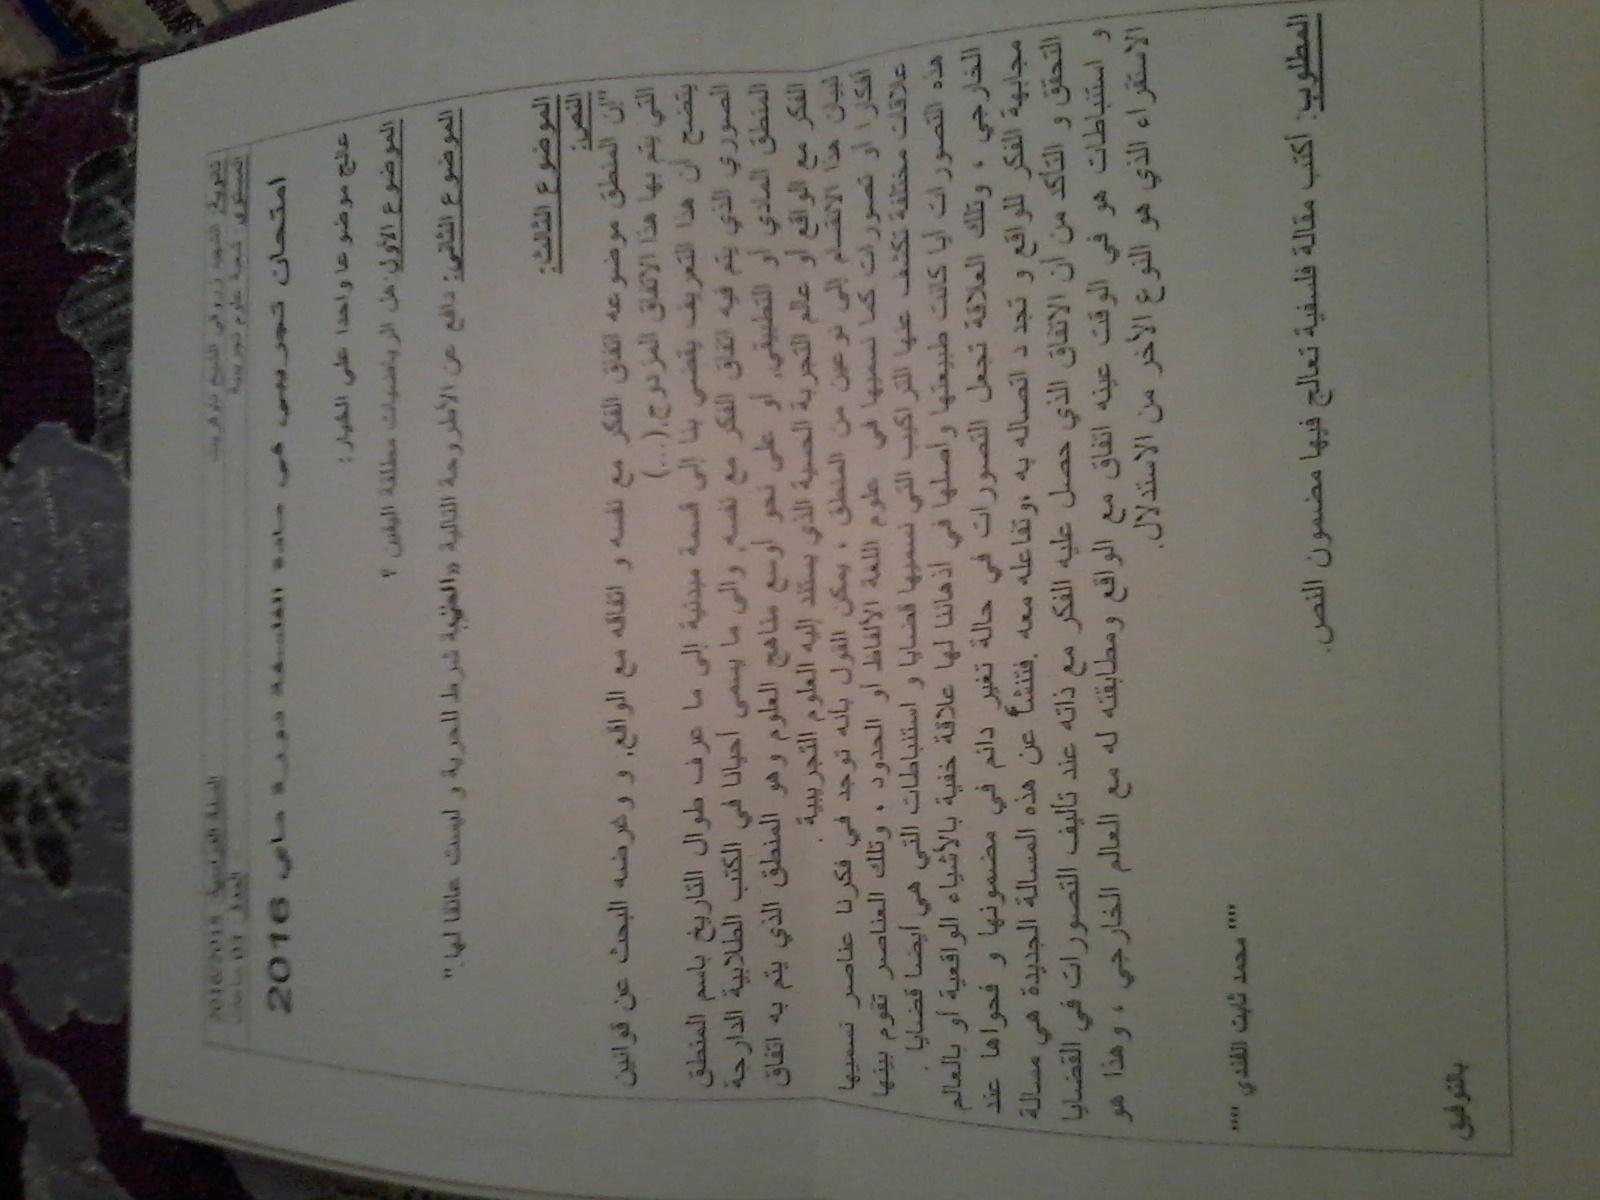 ثانوية: الشهيد زروقي الشيخ
السنة الدراسية: 2016/2015
المستوى: شعبة علوم تجريبية
المدة: 03 ساعات
امتحان تجريبي في مادة الفلسفة دورة ماي 2016
عالج موضوعا واحدا على الخيار:
الموضوع الأول: هل الرياضيات مطلقة اليقين ؟
الموضوع الثاني: دافع عن الأطروحة التالية «الحتمية شرط للحرية و ليست عائقا لها."
الموضوع الثالث:
النص:
"إن المنطق موضوعه اتفاق الفكر مع نفسه و اتفاقه مع الواقع, و وغرضه البحث عن قوانين
التي يتم بها هذا الاتفاق المزدوج.(...)
يتضح أن هذا التعريف يفضي بنا إلى قسمة مبدئية إلى ما عرف طوال التاريخ باسم المنطق
الصوري الذي يتم فيه اتفاق الفكر مع نفسه, والى ما يسمى أحيانا في الكتب الطلابية الدارجة
المنطق المادي أو التطبيقي, أو على نحو أوسع مناهج العلوم وهو المنطق الذي يتم به اتفاق
الفكر مع الواقع أو عالم التجربة الحسية الذي يستند إليه العلوم التجريبية.
لبيان هذا الانقسام إلى نوعين من المنطق ، يمكن القول بأنه توجد في فكرنا عناصر نسميها
أفكارا أو تصورات كما نسميها في علوم اللغة الألفاظ أو الحدود ، وتلك العناصر تقوم بينها
علاقات مختلفة تكشف عنها التراكيب التي نسميها قضايا و استنباطات التي هي أيضا قضايا .
هذه التصورات أيا كانت طبيعتها وأصلها في أذهاننا لها علاقة خفية بالأشياء الواقعية أو بالعالم
الخارجي ، وتلك العلاقة تجعل التصورات في حالة تغير دائم في مضمونها و فحواها عند
مجابهة الفكر للواقع و تجدد اتصاله به ،وتفاعله معه .فتنشأ عن هذه المسالة الجديدة هي مسالة
التحقق و التأكد من أن الاتفاق الذي حصل عليه الفكر مع ذاته عند تأليف التصورات في القضايا
و استنباطات هو في الوقت عينه اتفاق مع الواقع ومطابقته له مع العالم الخارجي ، وهذا هو
الاستقراء الذي هو النوع الأخر من الاستدلال.
"" محمد ثابت الفندي ""
المطلوب: أكتب مقالة فلسفية تعالج فيها مضمون النص.
بالتوفيق